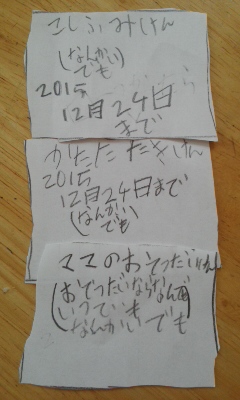 こしふみけん
(なんかい
でも)
2015
12月24日
まで
かたたたきけん
2015
12月24日まで
(なんかい
でも)
ママのおてつだいけん
(おてつだいならなん
いつでも
なんかいでも